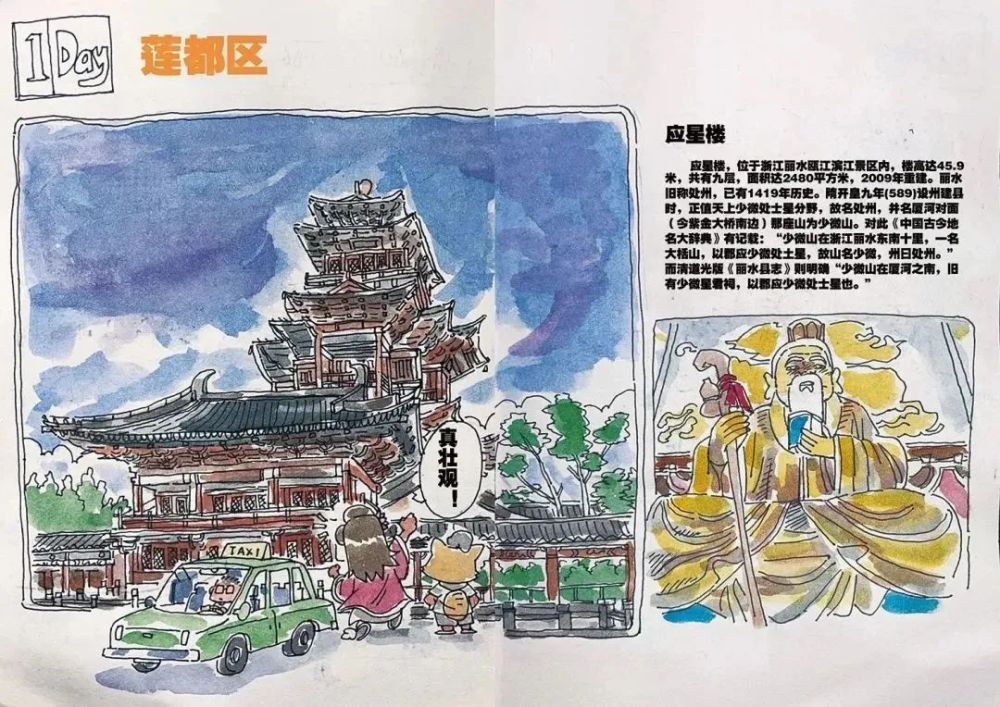 1 Day
莲都区
应星楼
应星楼，位于浙江丽水瓯江滨江景区内，楼高达45.9
米，共有九层，面积达2480平方米，2009年重建。丽水
旧称处州，已有1419年历史。隋开皇九年(589)设州建县
时，正值天上少微处士星分野，故名处州，并名厦河对面
（今紫金大桥南边）那座山为少微山。对此《中国古今地
名大辞典》有记载：“少微山在浙江丽水东南十里，一名
大栝山，以郡应少微处士星，故山名少微，州曰处州。”
而清道光版《丽水县志》则明确“少微山在厦河之南，旧
有少微星君祠，以郡应少微处士星也。”
真壮观！
TAXI